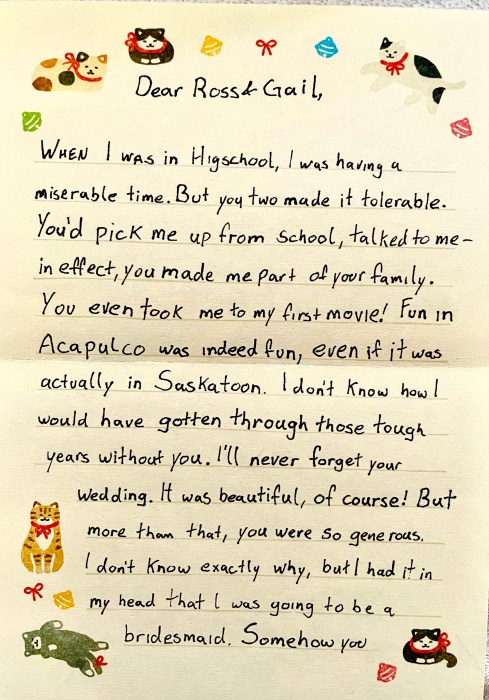 Dear Ross & Gail,
When I was in Higschool, I was having a
miserable time. But you two made it tolerable.
You'd pick me up from school, talked to me-
in effect, you made me part of your family.
You even took me to my first movie! Fun in
Acapulco was indeed fun, even if it was
actually in Saskatoon. I don't know how I
would have gotten through those tough
years without you. I'll never forget your
wedding. It was beautiful, of course! But
more than that, you were so generous.
I don't know exactly why, but I had it in
my head that I was going to be a
bridesmaid. Somehow you